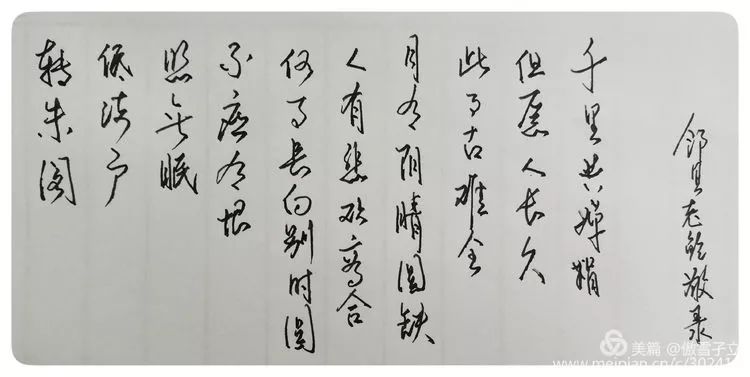 转朱阁
低绮户
照无眠
不应有恨
何事长向别时圆
人有悲欢离合
月有阴晴圆缺
此事古难全
但愿人长久
千里共婵娟
敬录
美篇 @傲雪子立
www.meipian.cn/c/30241